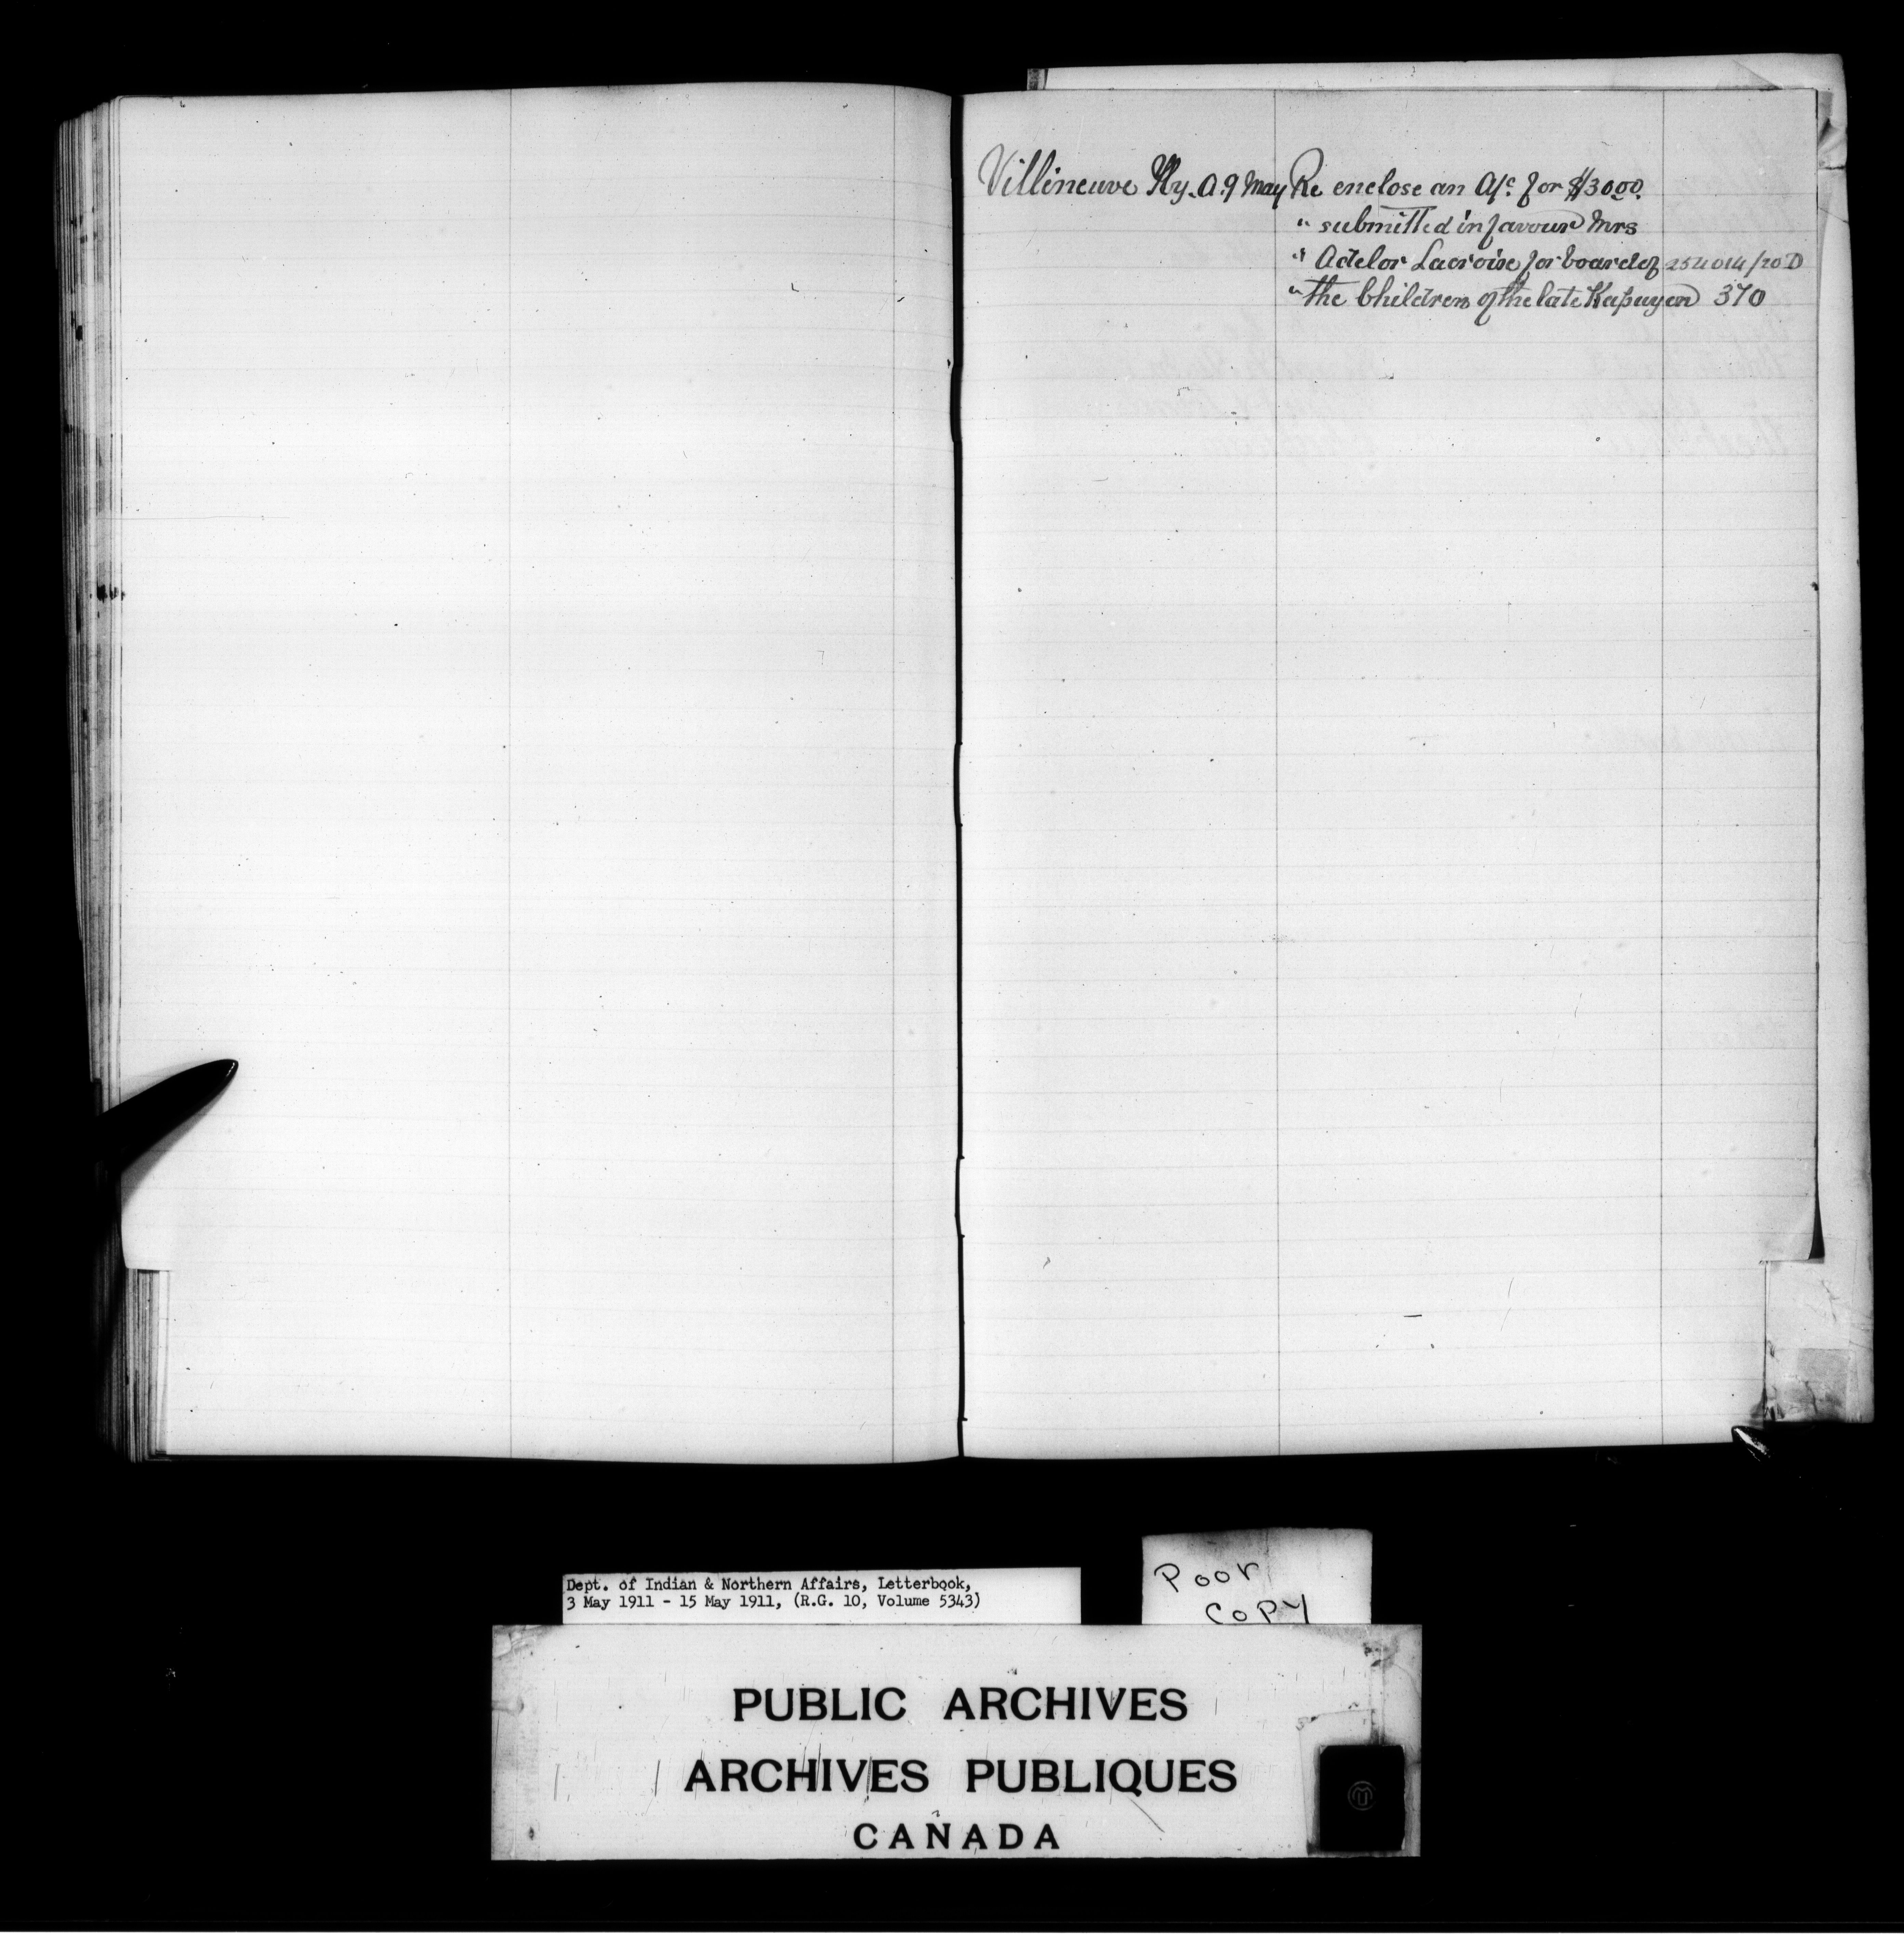 Villeneuve Hy. A. 9 May Re enclose an A/c for $30.00.
" submitted in favour Mrs
" Adelor Lacroise for board of 254014/20 D
" the Children of the late Kapuyen 370
Dept. of Indian & Northern Affairs, Letterbook,
3 May 1911 - 15 May 1911, (R.G. 10, Volume 5343)
Poor
COPY
PUBLIC ARCHIVES
ARCHIVES PUBLIQUES
CANADA